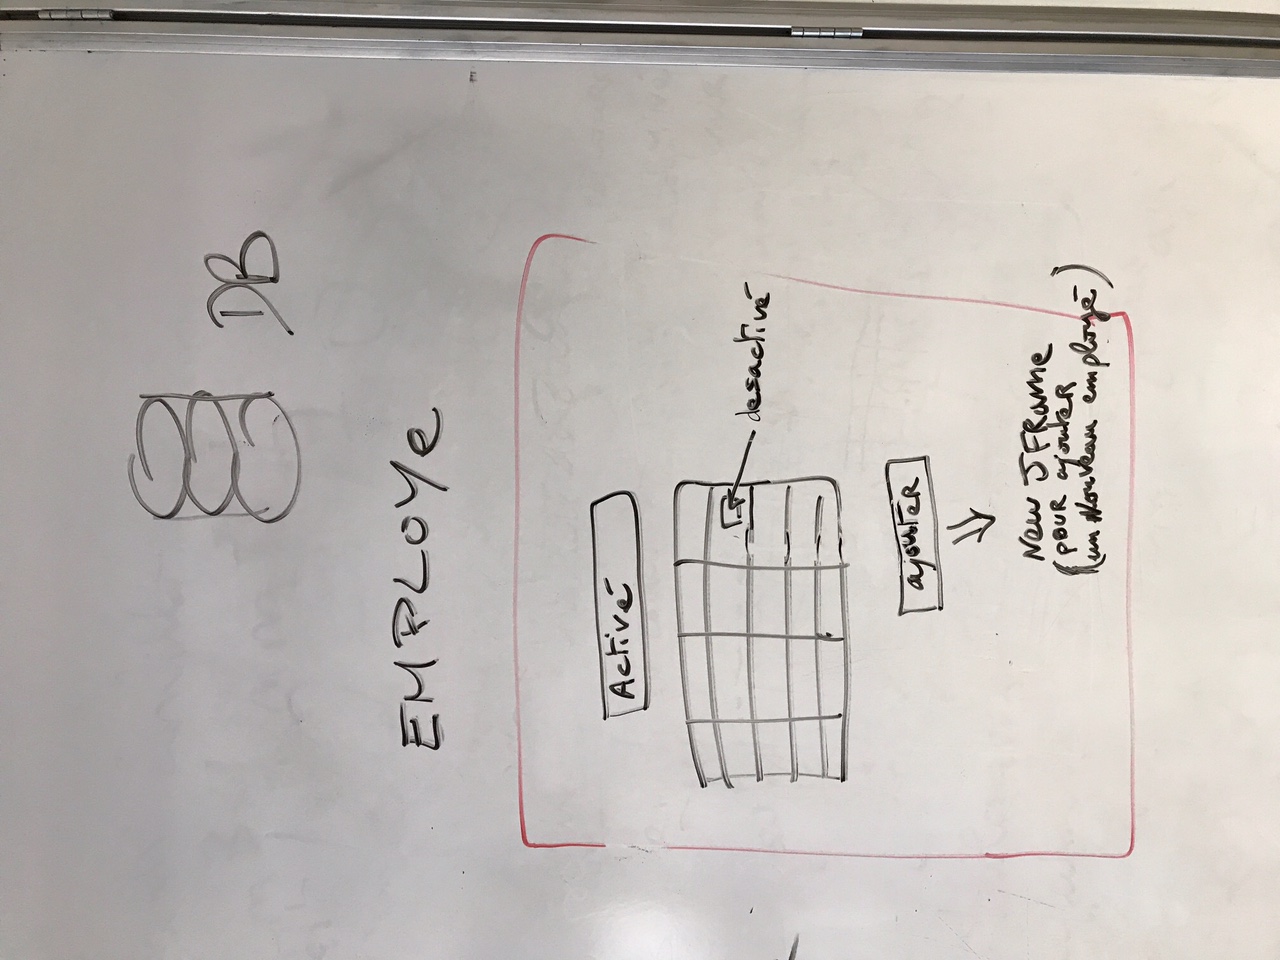 DB
EMPLOYe
Activé
desactivé
ajouter
New JFRame
(pour ajouter
un Nouveau employé)